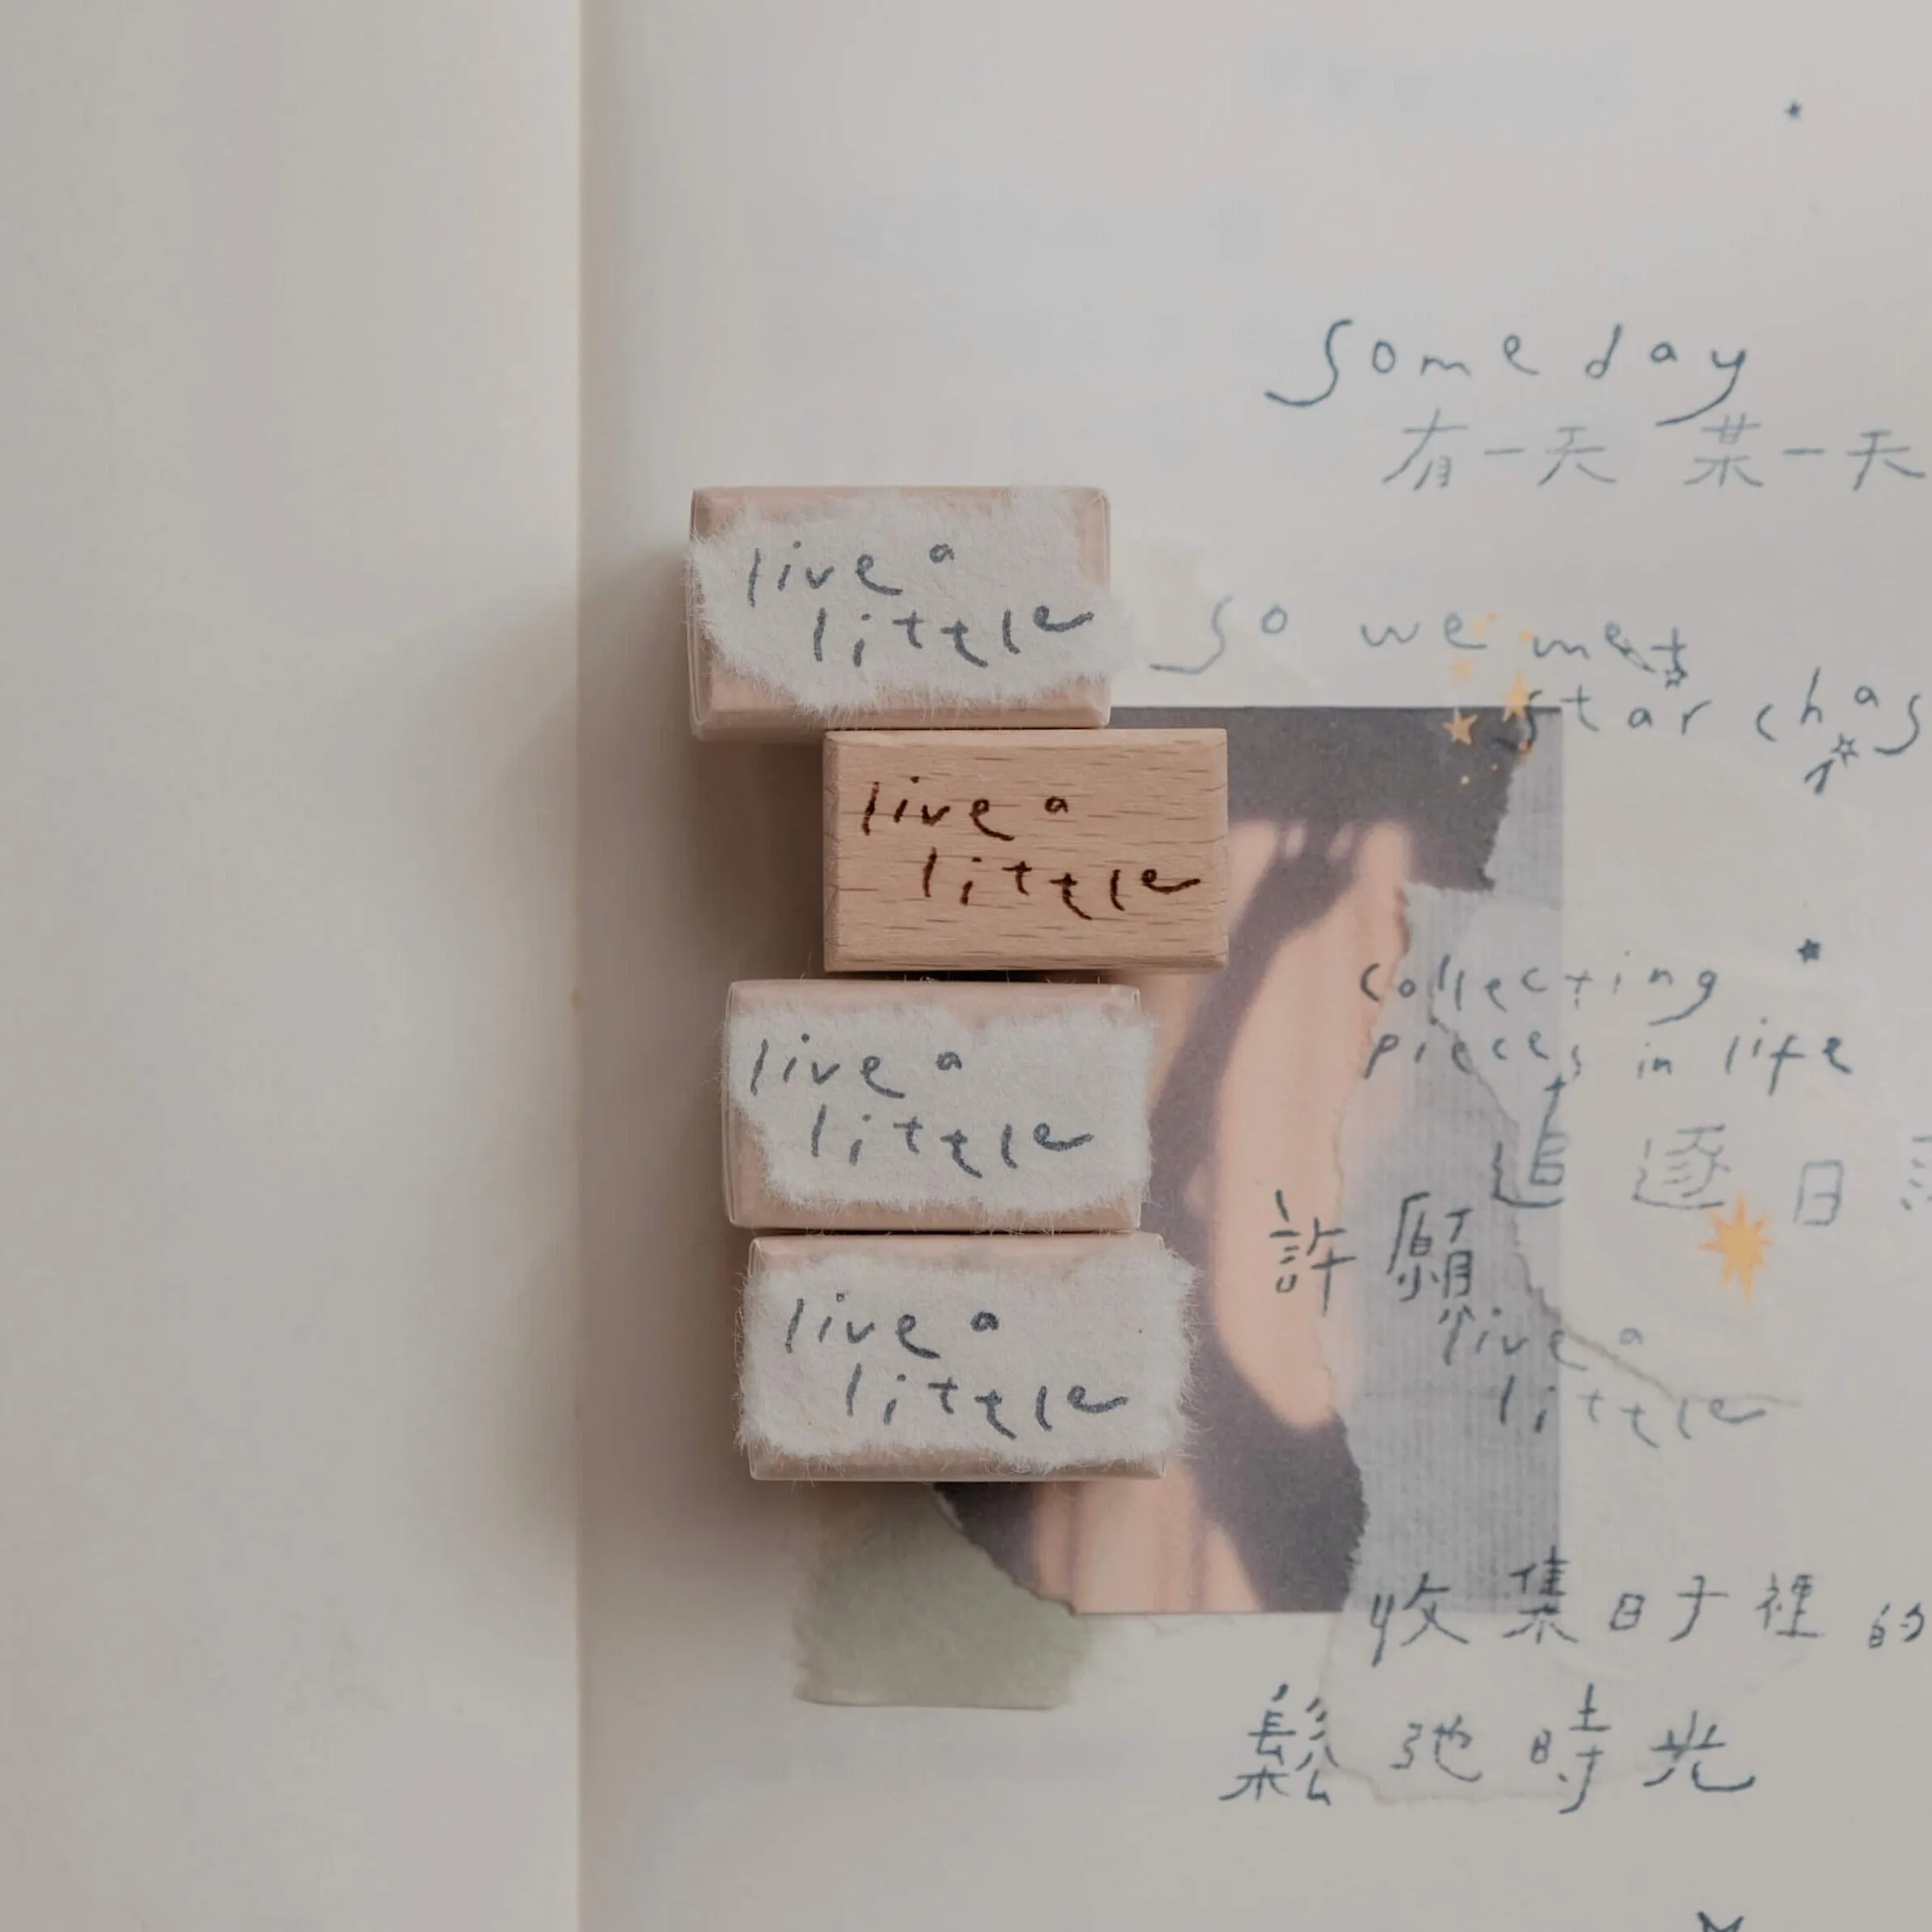 someday
有一天 某一天
live a
little
so we met
star chas
live a
little
collecting
pieces in life
live a
little
追逐日
許願
live a
little
live a
little
收集日子裡的
鬆弛時光